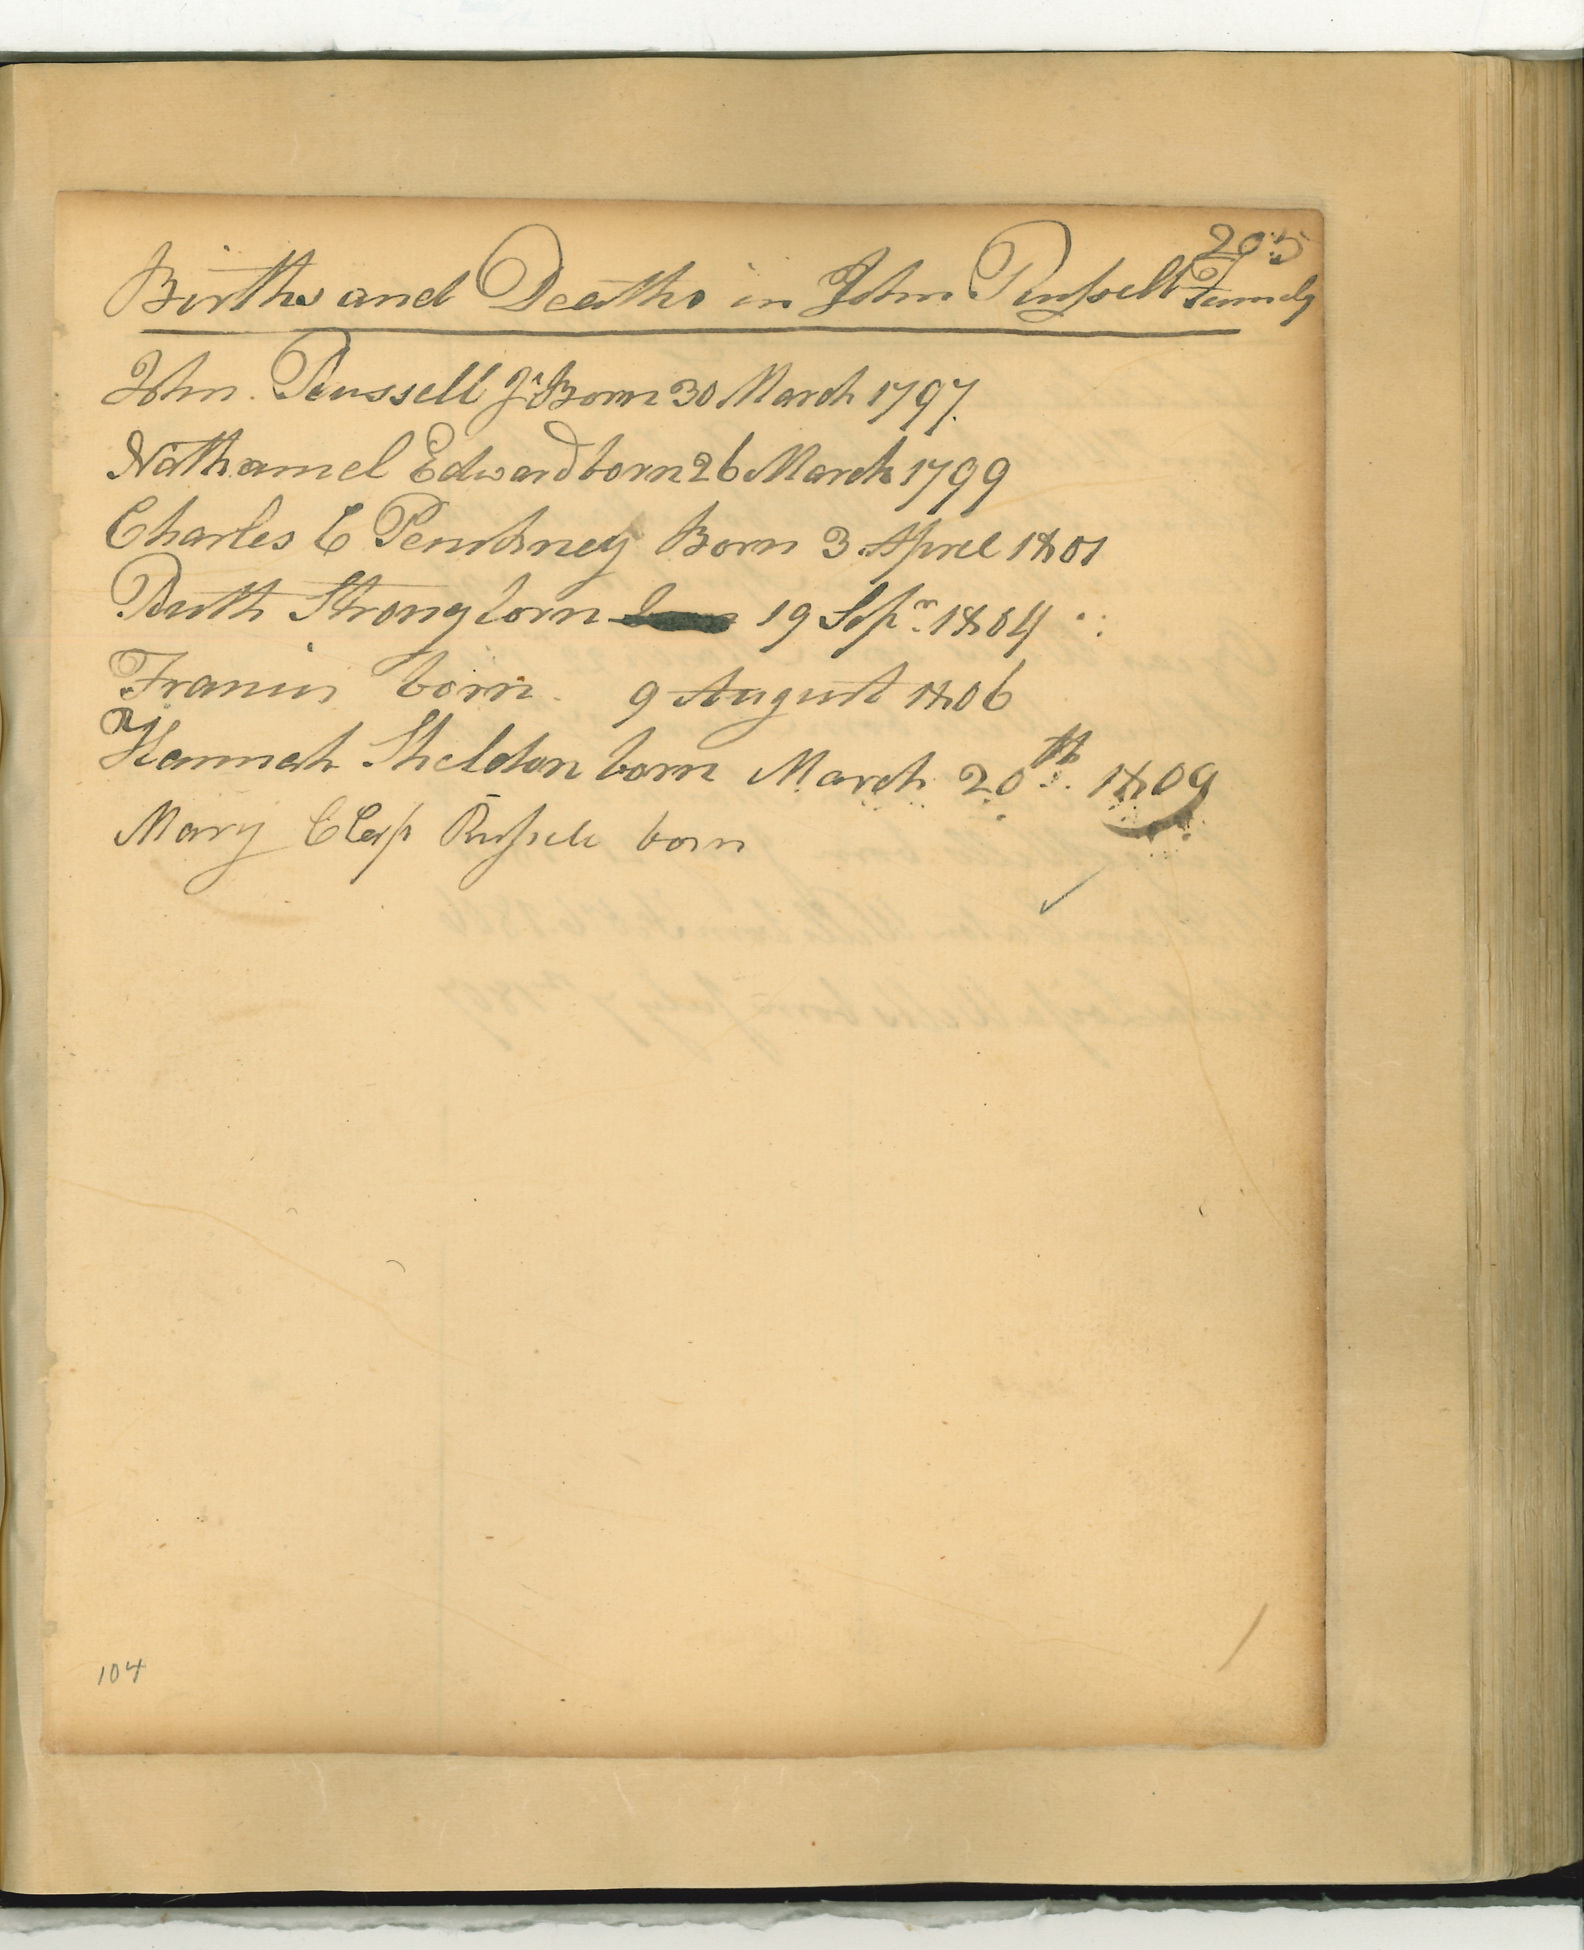 205
Births and Deaths in John Russell Family
John Russell Jr Born 30 March 1797
Nathaniel Edward born 26 March 1799
Charles C Pinckney Born 3 April 1801
Ruth Strong born 19 Sepr. 1804
Francis born 9 August 1806
Hannah Sheldon born March 20th. 1809
Mary Clap Russell born
104